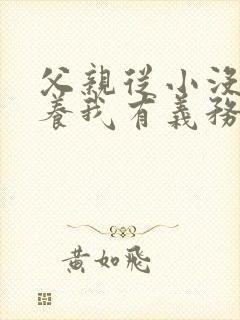 父親從小沒
養我有義務
黃如飛